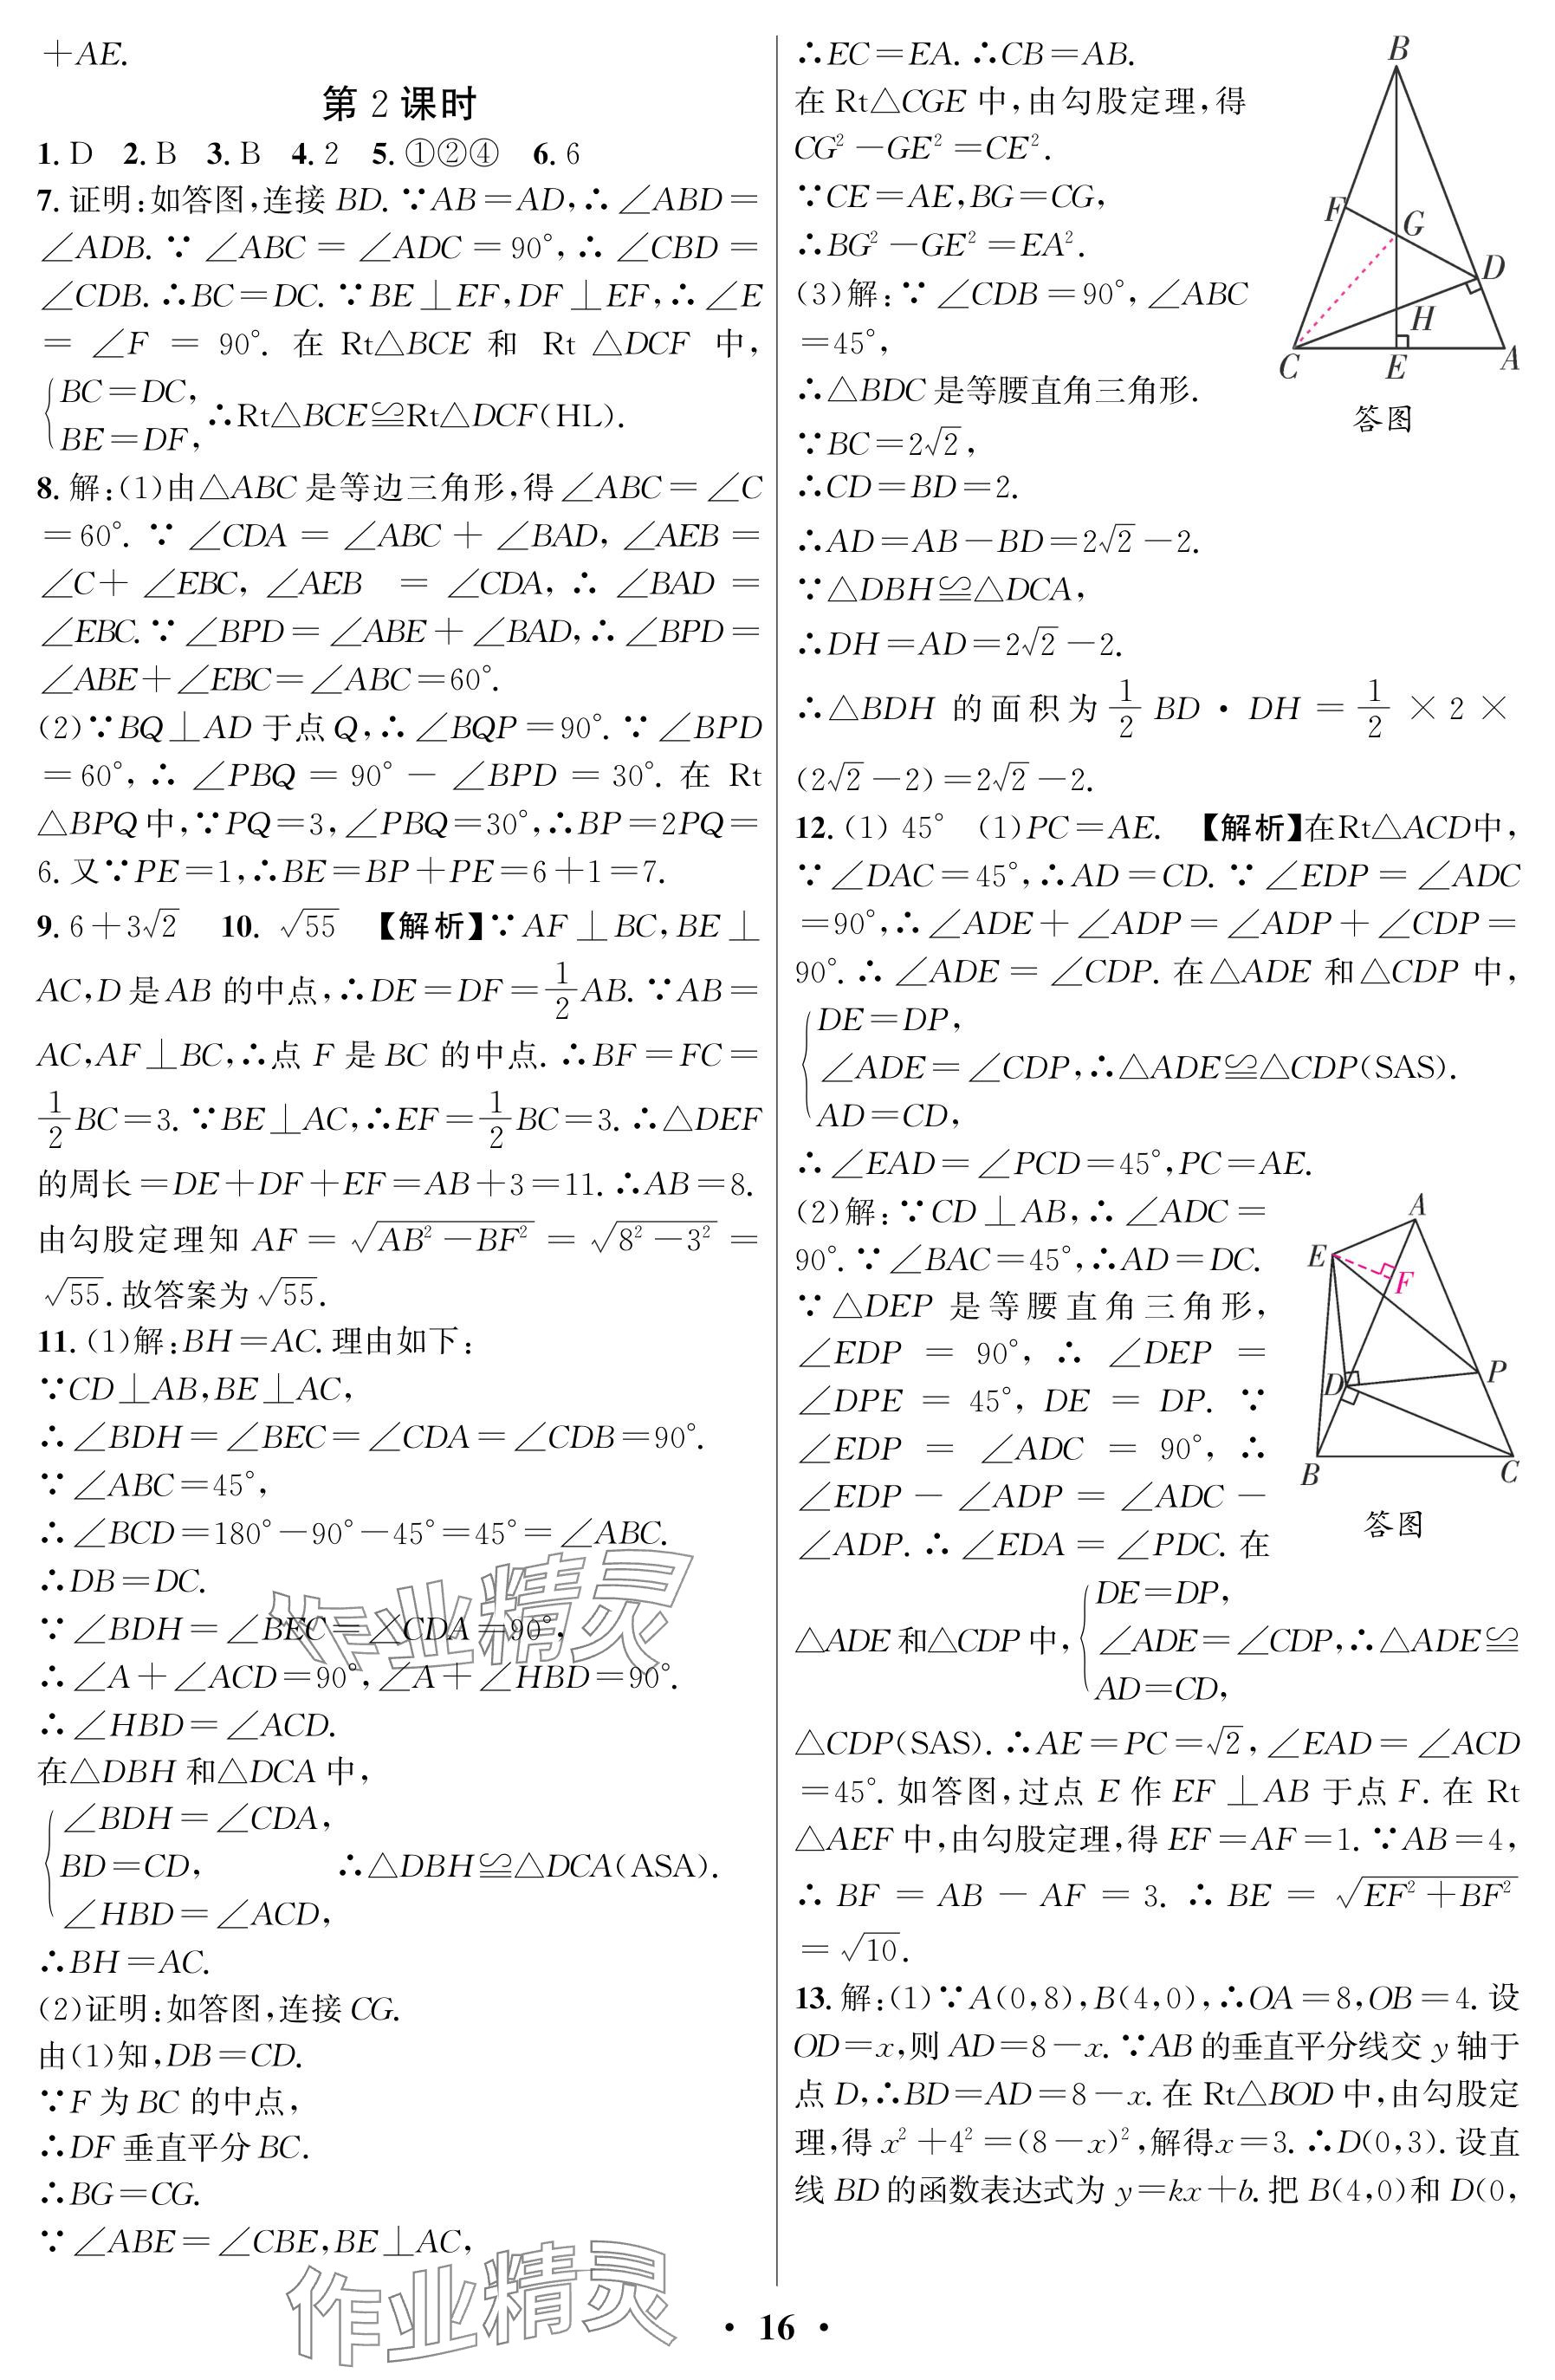 +AE.
第 2 课时
1. D 2. B 3. B 4. 2 5. ①②④ 6. 6
7. 证明:如答图,连接 BD. ∵AB=AD,∴∠ABD=
∠ADB. ∵∠ABC=∠ADC=90°,∴∠CBD=
∠CDB. ∴BC=DC. ∵BE⊥EF,DF⊥EF,∴∠E
=∠F=90°. 在 Rt△BCE 和 Rt△DCF 中,
{BC=DC,
BE=DF, ∴Rt△BCE≌Rt△DCF(HL).
8. 解:(1)由△ABC 是等边三角形,得∠ABC=∠C
=60°. ∵∠CDA=∠ABC+∠BAD,∠AEB=
∠C+∠EBC,∠AEB =∠CDA,∴∠BAD=
∠EBC. ∵∠BPD=∠ABE+∠BAD,∴∠BPD=
∠ABE+∠EBC=∠ABC=60°.
(2)∵BQ⊥AD 于点 Q,∴∠BQP=90°. ∵∠BPD
=60°,∴∠PBQ=90°-∠BPD=30°. 在 Rt
△BPQ 中,∵PQ=3,∠PBQ=30°,∴BP=2PQ=
6. 又∵PE=1,∴BE=BP+PE=6+1=7.
9. 6+3√2 10. √55 【解析】∵AF⊥BC,BE⊥
AC,D 是 AB 的中点,∴DE=DF=1/2AB. ∵AB=
AC,AF⊥BC,∴点 F 是 BC 的中点. ∴BF=FC=
1/2BC=3. ∵BE⊥AC,∴EF=1/2BC=3. ∴△DEF
的周长=DE+DF+EF=AB+3=11. ∴AB=8.
由勾股定理知 AF=√(AB²-BF²)=√(8²-3²)=
√55. 故答案为√55.
11. (1)解:BH=AC. 理由如下:
∵CD⊥AB,BE⊥AC,
∴∠BDH=∠BEC=∠CDA=∠CDB=90°.
∵∠ABC=45°,
∴∠BCD=180°-90°-45°=45°=∠ABC.
∴DB=DC.
∵∠BDH=∠BEC=∠CDA=90°,
∴∠A+∠ACD=90°,∠A+∠HBD=90°.
∴∠HBD=∠ACD.
在△DBH 和△DCA 中,
{∠BDH=∠CDA,
BD=CD, ∴△DBH≌△DCA(ASA).
∠HBD=∠ACD,
∴BH=AC.
(2)证明:如答图,连接 CG.
由(1)知,DB=CD.
∵F 为 BC 的中点,
∴DF 垂直平分 BC.
∴BG=CG.
∵∠ABE=∠CBE,BE⊥AC,
作业精灵
作业精灵
∴EC=EA. ∴CB=AB.
在 Rt△CGE 中,由勾股定理,得
CG²-GE²=CE².
∵CE=AE,BG=CG,
∴BG²-GE²=EA².
(3)解:∵∠CDB=90°,∠ABC
=45°,
∴△BDC 是等腰直角三角形.
∵BC=2√2,
∴CD=BD=2.
∴AD=AB-BD=2√2-2.
∵△DBH≌△DCA,
∴DH=AD=2√2-2.
∴△BDH 的面积为 1/2 BD·DH=1/2×2×
(2√2-2)=2√2-2.
B
F
G
D
H
C
E
A
答图
12. (1) 45° (1)PC=AE. 【解析】在Rt△ACD中,
∵∠DAC=45°,∴AD=CD. ∵∠EDP=∠ADC
=90°,∴∠ADE+∠ADP=∠ADP+∠CDP=
90°. ∴∠ADE=∠CDP. 在△ADE 和△CDP 中,
{DE=DP,
∠ADE=∠CDP,∴△ADE≌△CDP(SAS).
AD=CD,
∴∠EAD=∠PCD=45°,PC=AE.
(2)解:∵CD⊥AB,∴∠ADC=
90°. ∵∠BAC=45°,∴AD=DC.
∵△DEP 是等腰直角三角形,
∠EDP=90°,∴∠DEP=
∠DPE=45°,DE=DP. ∵
∠EDP=∠ADC=90°,∴
∠EDP-∠ADP=∠ADC-
∠ADP. ∴∠EDA=∠PDC. 在
A
E
F
D
P
B
C
答图
{DE=DP,
△ADE和△CDP中, ∠ADE=∠CDP,∴△ADE≌
AD=CD,
△CDP(SAS). ∴AE=PC=√2,∠EAD=∠ACD
=45°. 如答图,过点 E 作 EF⊥AB 于点 F. 在 Rt
△AEF 中,由勾股定理,得 EF=AF=1. ∵AB=4,
∴BF=AB-AF=3. ∴BE=√(EF²+BF²)
=√10.
13. 解:(1)∵A(0,8),B(4,0),∴OA=8,OB=4. 设
OD=x,则 AD=8-x. ∵AB 的垂直平分线交 y 轴于
点 D,∴BD=AD=8-x. 在 Rt△BOD 中,由勾股定
理,得 x²+4²=(8-x)²,解得x=3. ∴D(0,3). 设直
线 BD 的函数表达式为 y=kx+b. 把 B(4,0)和 D(0,
· 16 ·